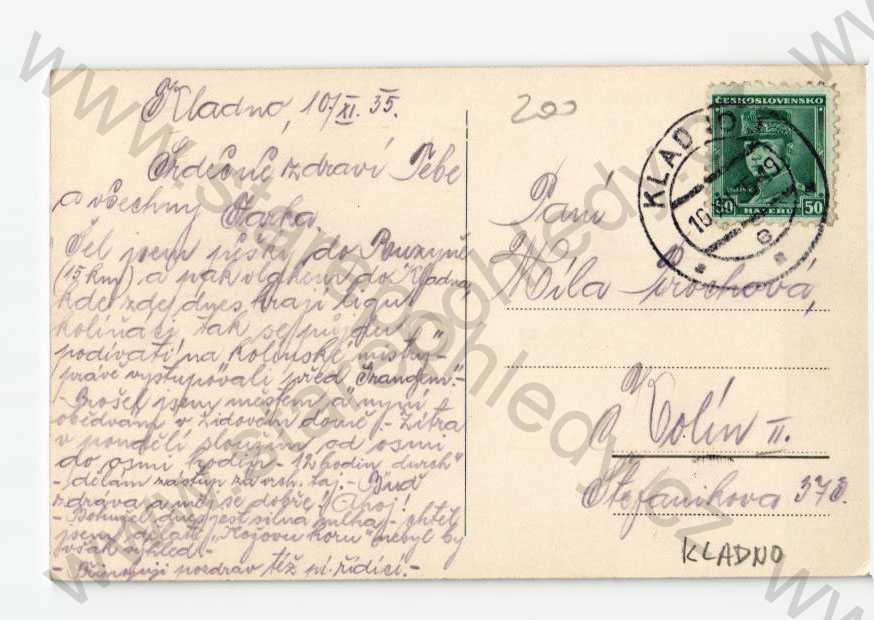 Kladno, 10/XI. 35.
Srdečně zdraví Tebe
a všechny Jarka.
Šel jsem pěšky do Ruzyně
(15 km) a pak vlakem do Kladna,
kde zde dnes hrají ligu
kolíňáci tak se půjdu
podívati na kolínské mistry-
právě vystupovali před "Grandem".-
-Prošel jsem městem a nyní
obědvám v židovém domě.- Zítra
v pondělí sloužím od osmi
do osmi hodin - 12 hodin "durch"
- dělám zástup za vrch. taj. - Buď
zdráva a měj se dobře! Ahoj!
- Bohužel dnes jest silná mlha, - chtěl
jsem na nebyl by
však výhled.-
- pozdrav též pí. řídící.-
200
ČESKOSLOVENSKO
50 HALÉŘŮ 50
KLADNO
c
Paní
Míla Prochová,
Kolín II.
Štefanikova 373.
KLADNO
www.staropohledy.cz